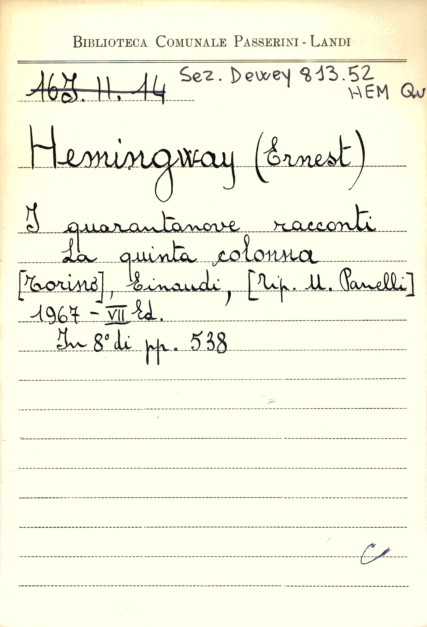 BIBLIOTECA COMUNALE PASSERINI - LANDI
16J. II. 14 Sez. Dewey 813.52
HEM Qu
Hemingway (Ernest)
I quarantanove racconti
La quinta colonna
[Torino], Einaudi, [Tip. U. Panelli]
1967 - VII Ed.
In 8° di pp. 538